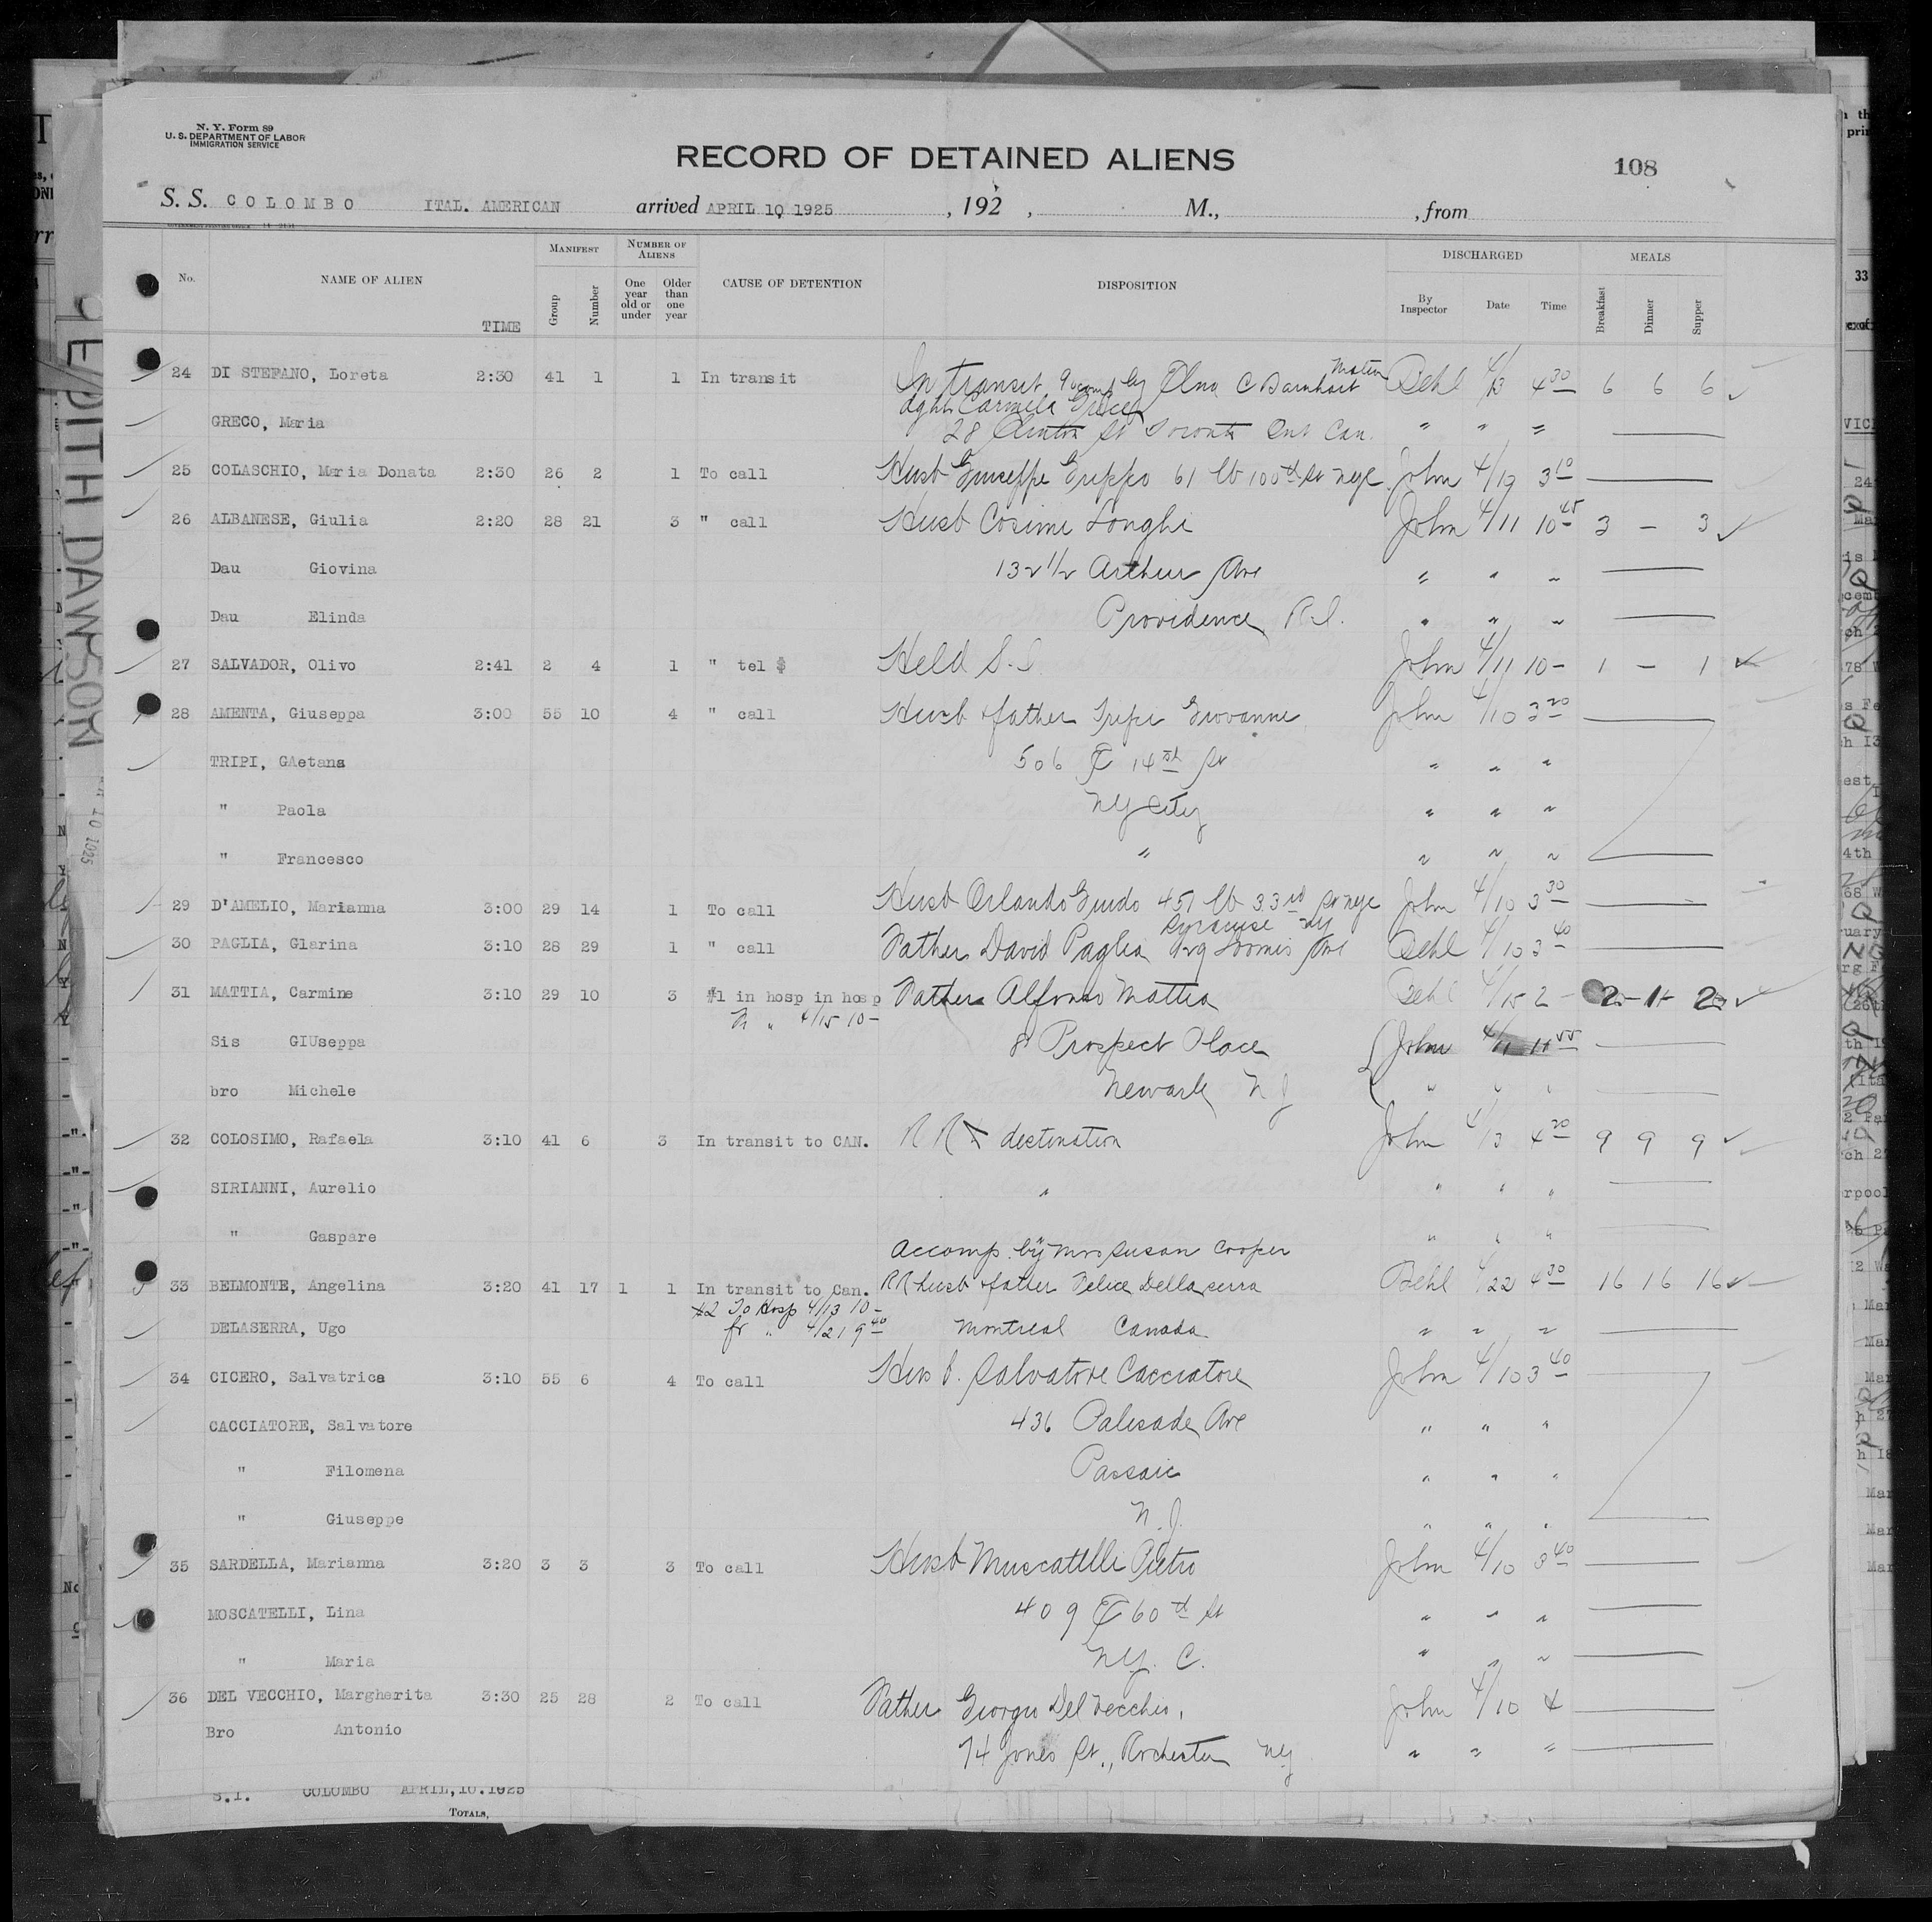 N. Y. Form 89
U. S. DEPARTMENT OF LABOR
IMMIGRATION SERVICE
RECORD OF DETAINED ALIENS
108
S. S. COLOMBO ITAL. AMERICAN arrived APRIL 10 1925 , 192 , M., , from
No. NAME OF ALIEN TIME MANIFEST Group Number NUMBER OF ALIENS One year old or under Older than one year CAUSE OF DETENTION DISPOSITION DISCHARGED By Inspector Date Time MEALS Breakfast Dinner Supper
24 DI STEFANO, Loreta 2:30 41 1 1 In transit In transit accomp by Elna C Barnhart Matron Behl 4/13 4 30 6 6 6
GRECO, Maria
28 St Toronto Ont Can. " " "
25 COLASCHIO, Maria Donata 2:30 26 2 1 To call Husb Giuseppe Grippo 61 W 100th St NYC John 3 10
26 ALBANESE, Giulia 2:20 28 21 3 " call Husb Cosimo Longhi John 4/11 10 45 3 – 3
Dau Giovina 132 1/2 Arthur Ave " " "
Dau Elinda Providence R.I. " " "
27 SALVADOR, Olivo 2:41 2 4 1 " tel $ Held S.I. John 4/11 10 – 1 – 1
28 AMENTA, Giuseppa 3:00 55 10 4 " call Husb & father Tripi Giovanni John 4/10 3 20
TRIPI, GAetana 506 E 14th St " " "
" Paola NY City " " "
" Francesco " " " "
29 D'AMELIO, Marianna 3:00 29 14 1 To call Husb Orlando Guido 451 W 33rd St NYC John 4/10 3 30
Syracuse NY
30 PAGLIA, Glarina 3:10 28 29 1 " call Father David Paglia 129 Loomis Ave Behl 4/10 3 40
31 MATTIA, Carmine 3:10 29 10 3 #1 in hosp in hosp Father Alfonso Mattia Behl 4/15 2 – 2 – 1 – 2
Fr " 4/15 10 –
Sis GIUseppa 8 Prospect Place John 4/11 11 55
bro Michele Newark N J " " "
32 COLOSIMO, Rafaela 3:10 41 6 3 In transit to CAN. R R destination John 4/13 4 20 9 9 9
SIRIANNI, Aurelio " " " "
" Gaspare " " "
Accomp. by Mrs Susan Cooper
33 BELMONTE, Angelina 3:20 41 17 1 1 In transit to Can. RR husb & father Felice Dellaserra Behl 4/22 4 30 16 16 16
#2 To Hosp 4/13 10 –
fr " 4/21 9 40
DELASERRA, Ugo Montreal Canada " " "
34 CICERO, Salvatrice 3:10 55 6 4 To call Husb. Salvatore Cacciatore John 4/10 3 40
CACCIATORE, Salvatore 436 Palisade Ave " " "
" Filomena Passaic " " "
" Giuseppe N. J. " " "
35 SARDELLA, Marianna 3:20 3 3 3 To call Husb Muscatelli Pietro John 4/10 3 40
MOSCATELLI, Lina 409 E 60th St " " "
" Maria N.Y. C. " " "
36 DEL VECCHIO, Margherita 3:30 25 28 2 To call Father Giorgio Del Vecchio, John 4/10 4
Bro Antonio
74 Jones St., Rochester NY " " "
S.I. COLOMBO APRIL, 10. 1925
TOTALS,
EDITH DAWSON